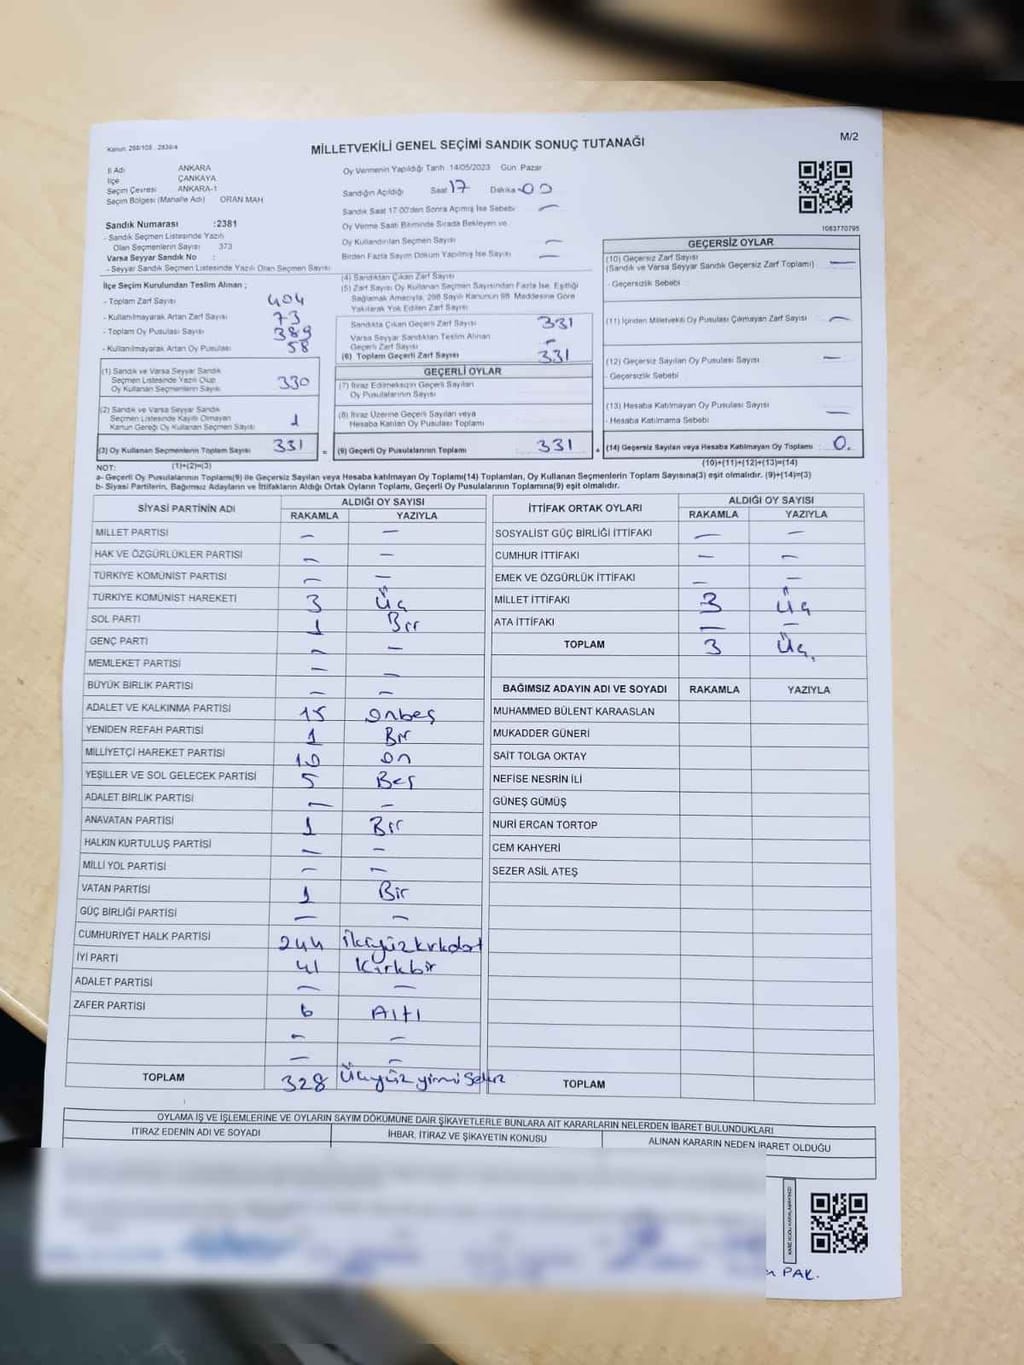 Kanun: 298/105 , 2839/4
MİLLETVEKİLİ GENEL SEÇİMİ SANDIK SONUÇ TUTANAĞI
M/2
İl Adı ANKARA
İlçe ÇANKAYA
Seçim Çevresi ANKARA-1
Seçim Bölgesi (Mahalle Adı) ORAN MAH
Sandık Numarası :2381
- Sandık Seçmen Listesinde Yazılı
Olan Seçmenlerin Sayısı 373
Varsa Seyyar Sandık No :
- Seyyar Sandık Seçmen Listesinde Yazılı Olan Seçmen Sayısı
Oy Vermenin Yapıldığı Tarih 14/05/2023 Gün Pazar
Sandığın Açıldığı Saat 17 Dakika 00
Sandık Saat 17:00'den Sonra Açılmış İse Sebebi —
Oy Verme Saati Bitiminde Sırada Bekleyen ve
Oy Kullandırılan Seçmen Sayısı —
Birden Fazla Sayım Döküm Yapılmış İse Sayısı —
1083770795
İlçe Seçim Kurulundan Teslim Alınan ;
- Toplam Zarf Sayısı 404
- Kullanılmayarak Artan Zarf Sayısı 73
- Toplam Oy Pusulası Sayısı 389
- Kullanılmayarak Artan Oy Pusulası 58
(1) Sandık ve Varsa Seyyar Sandık
Seçmen Listesinde Yazılı Olup
Oy Kullanan Seçmenlerin Sayısı 330
(2) Sandık ve Varsa Seyyar Sandık
Seçmen Listesinde Kayıtlı Olmayan
Kanun Gereği Oy Kullanan Seçmen Sayısı 1
(3) Oy Kullanan Seçmenlerin Toplam Sayısı 331 =
(4) Sandıktan Çıkan Zarf Sayısı
(5) Zarf Sayısı Oy Kullanan Seçmen Sayısından Fazla İse, Eşitliği
Sağlamak Amacıyla, 298 Sayılı Kanunun 98. Maddesine Göre
Yakılarak Yok Edilen Zarf Sayısı
Sandıkta Çıkan Geçerli Zarf Sayısı 331
Varsa Seyyar Sandıktan Teslim Alınan
Geçerli Zarf Sayısı —
(6) Toplam Geçerli Zarf Sayısı 331
GEÇERLİ OYLAR
(7) İtiraz Edilmeksizin Geçerli Sayılan
Oy Pusulalarının Sayısı
(8) İtiraz Üzerine Geçerli Sayılan veya
Hesaba Katılan Oy Pusulası Toplamı
(9) Geçerli Oy Pusulalarının Toplamı 331 +
GEÇERSİZ OYLAR
(10) Geçersiz Zarf Sayısı
(Sandık ve Varsa Seyyar Sandık Geçersiz Zarf Toplamı) —
- Geçersizlik Sebebi
(11) İçinden Milletvekili Oy Pusulası Çıkmayan Zarf Sayısı —
(12) Geçersiz Sayılan Oy Pusulası Sayısı —
- Geçersizlik Sebebi
(13) Hesaba Katılmayan Oy Pusulası Sayısı
- Hesaba Katılmama Sebebi —
(14) Geçersiz Sayılan veya Hesaba Katılmayan Oy Toplamı 0.
NOT: (1)+(2)=(3)
(10)+(11)+(12)+(13)=(14)
a- Geçerli Oy Pusulalarının Toplamı(9) ile Geçersiz Sayılan veya Hesaba katılmayan Oy Toplamı(14) Toplamları, Oy Kullanan Seçmenlerin Toplam Sayısına(3) eşit olmalıdır. (9)+(14)=(3)
b- Siyasi Partilerin, Bağımsız Adayların ve İttifakların Aldığı Ortak Oyların Toplamı, Geçerli Oy Pusulalarının Toplamına(9) eşit olmalıdır.
SİYASİ PARTİNİN ADI ALDIĞI OY SAYISI
RAKAMLA YAZIYLA
MİLLET PARTİSİ — —
HAK VE ÖZGÜRLÜKLER PARTİSİ — —
TÜRKİYE KOMÜNİST PARTİSİ — —
TÜRKİYE KOMÜNİST HAREKETİ 3 Üç
SOL PARTİ 1 Bir
GENÇ PARTİ — —
MEMLEKET PARTİSİ — —
BÜYÜK BİRLİK PARTİSİ — —
ADALET VE KALKINMA PARTİSİ 15 onbeş
YENİDEN REFAH PARTİSİ 1 Bir
MİLLİYETÇİ HAREKET PARTİSİ 10 on
YEŞİLLER VE SOL GELECEK PARTİSİ 5 Beş
ADALET BİRLİK PARTİSİ — —
ANAVATAN PARTİSİ 1 Bir
HALKIN KURTULUŞ PARTİSİ — —
MİLLİ YOL PARTİSİ — —
VATAN PARTİSİ 1 Bir
GÜÇ BİRLİĞİ PARTİSİ — —
CUMHURİYET HALK PARTİSİ 244 ikiyüzkırkdört
İYİ PARTİ 41 Kırkbir
ADALET PARTİSİ — —
ZAFER PARTİSİ 6 Altı
— —
— —
TOPLAM 328 Üçyüzyirmisekiz
İTTİFAK ORTAK OYLARI ALDIĞI OY SAYISI
RAKAMLA YAZIYLA
SOSYALİST GÜÇ BİRLİĞİ İTTİFAKI — —
CUMHUR İTTİFAKI — —
EMEK VE ÖZGÜRLÜK İTTİFAKI — —
MİLLET İTTİFAKI 3 Üç
ATA İTTİFAKI — —
TOPLAM 3 Üç.
BAĞIMSIZ ADAYIN ADI VE SOYADI RAKAMLA YAZIYLA
MUHAMMED BÜLENT KARAASLAN
MUKADDER GÜNERİ
SAİT TOLGA OKTAY
NEFİSE NESRİN İLİ
GÜNEŞ GÜMÜŞ
NURİ ERCAN TORTOP
CEM KAHYERİ
SEZER ASİL ATEŞ
TOPLAM
OYLAMA İŞ VE İŞLEMLERİNE VE OYLARIN SAYIM DÖKÜMÜNE DAİR ŞİKAYETLERLE BUNLARA AİT KARARLARIN NELERDEN İBARET BULUNDUKLARI
İTİRAZ EDENİN ADI VE SOYADI İHBAR, İTİRAZ VE ŞİKAYETİN KONUSU ALINAN KARARIN NEDEN İBARET OLDUĞU
PAK.